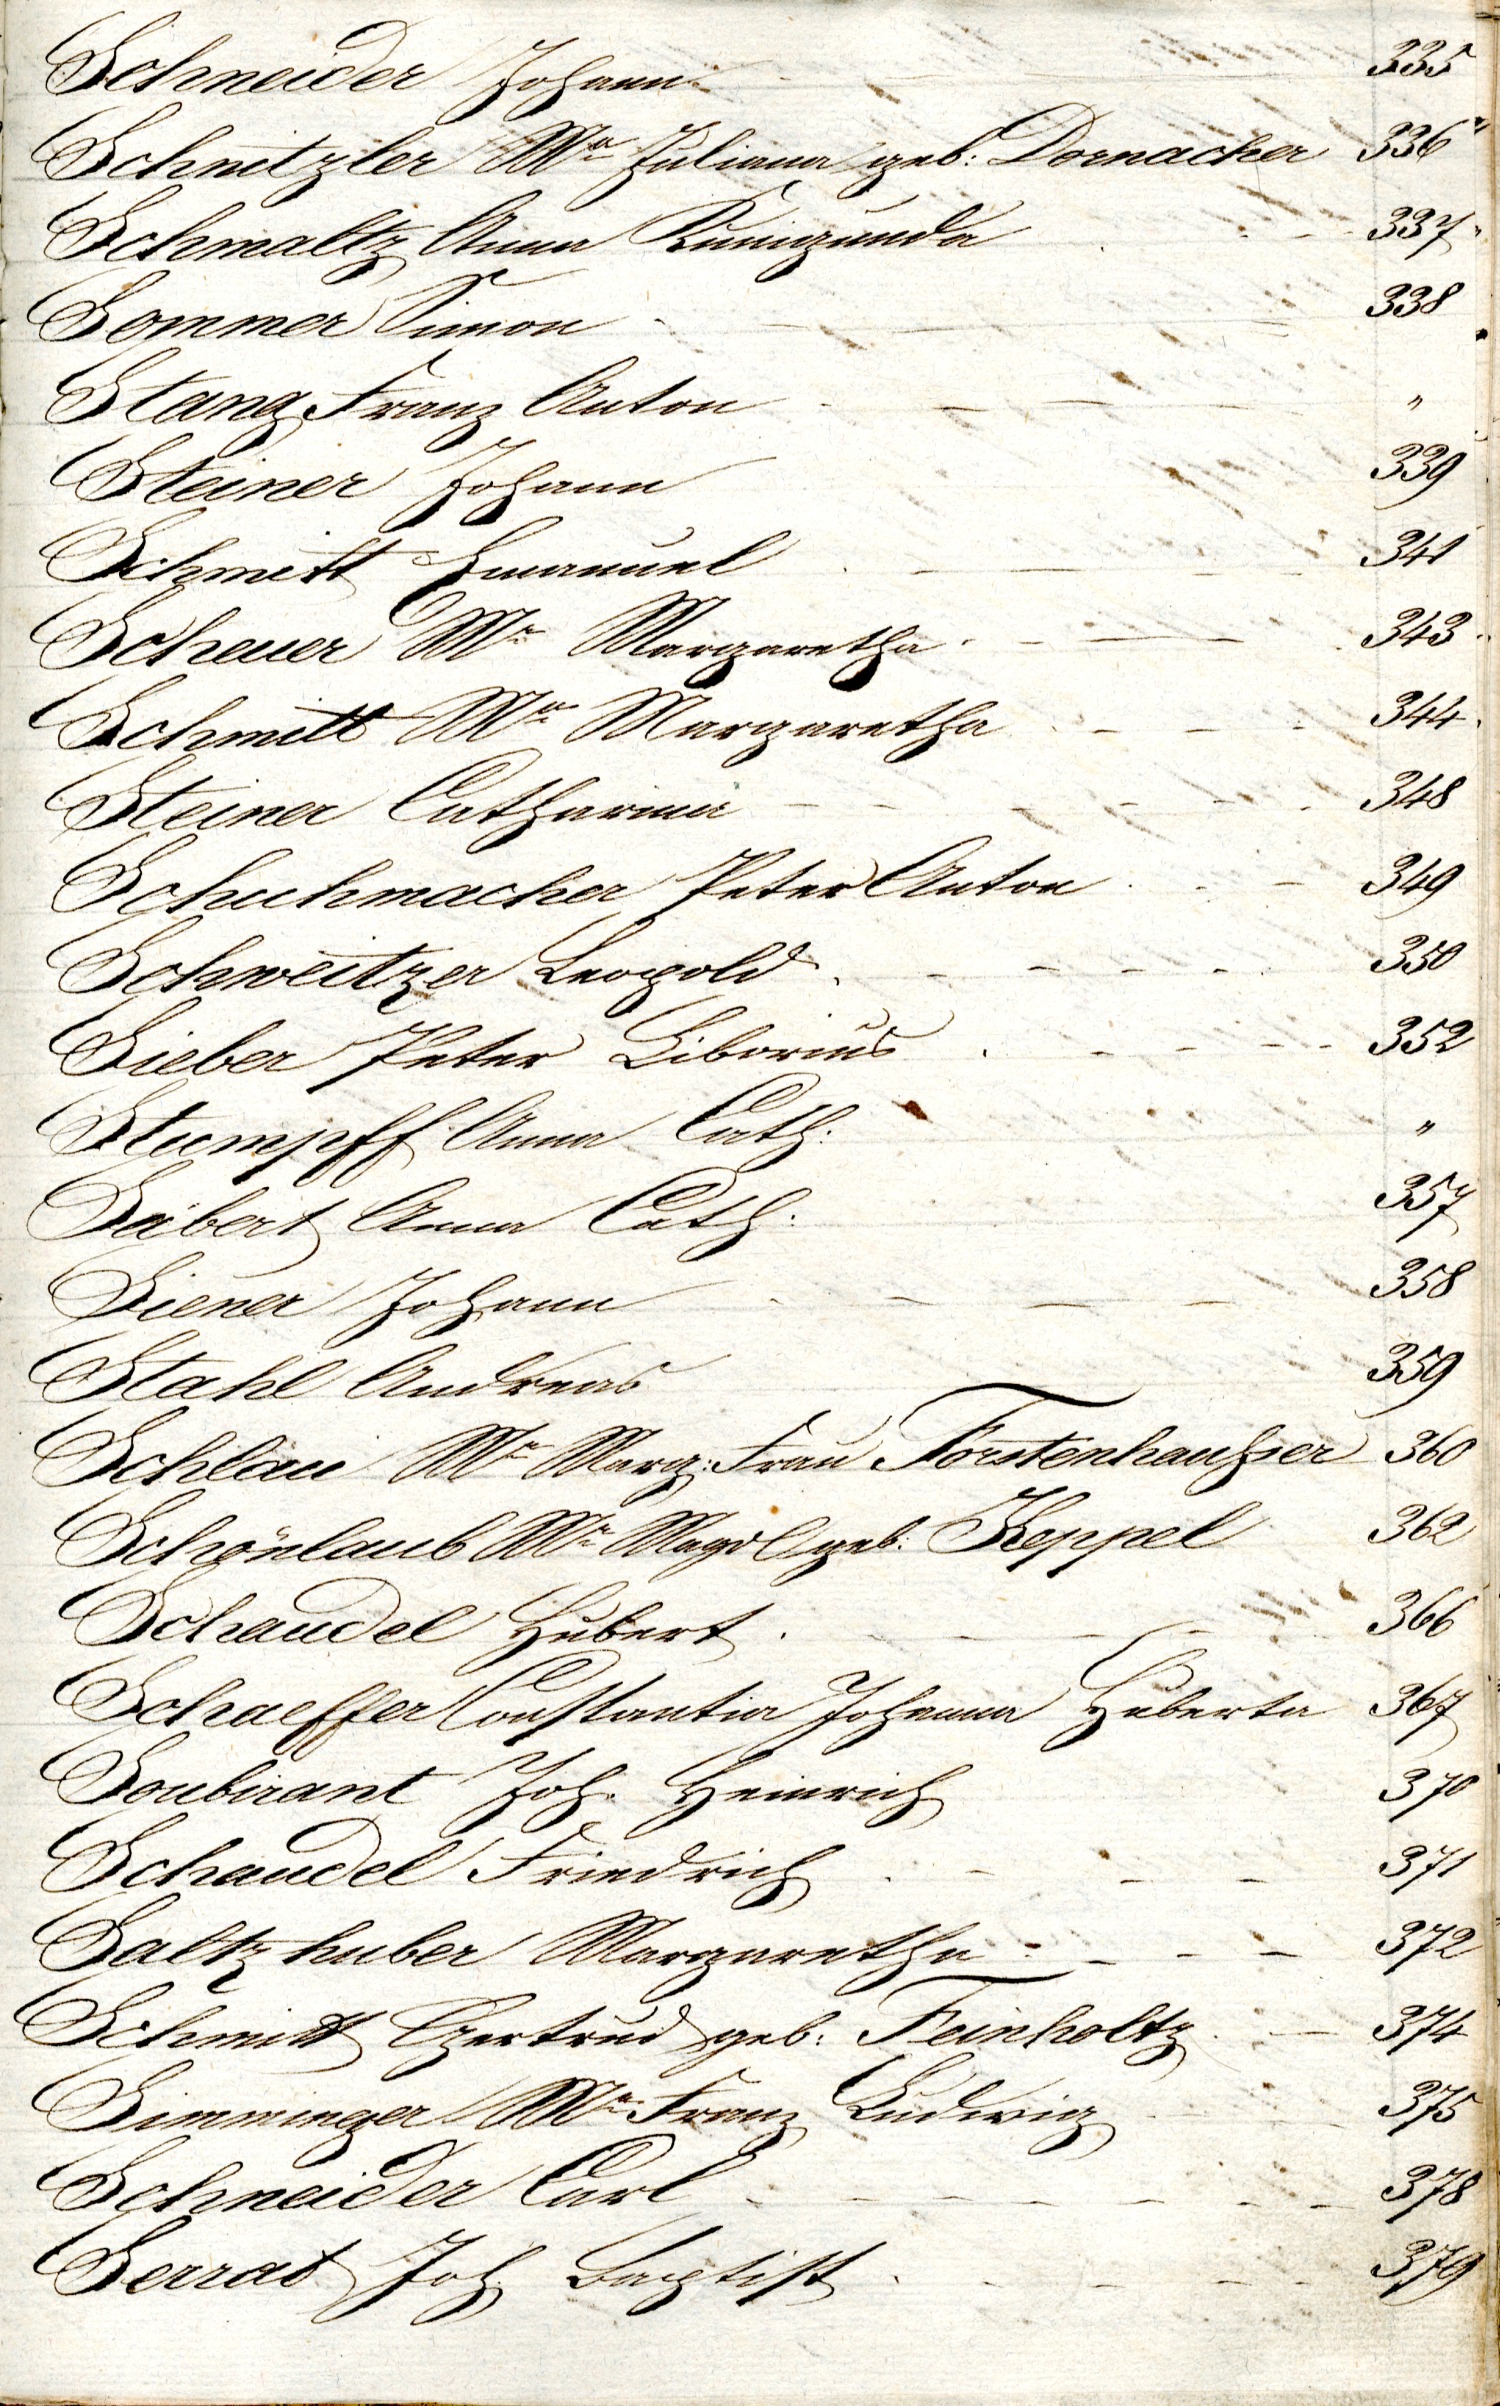 Schneider Johann 335
Schnitzler Mª Juliana geb: Dornacher 336
Schmaltz Anna Kunigunda 337
Sommer Simon 338
Stang Franz Anton "
Steiner Johann 339
Schmitt Emanuel 341
Scheuer Mª Margaretha 343
Schmitt Mª Margaretha 344
Steiner Catharina 348
Schuhmacher Peter Anton 349
Schweitzer Leopold 350
Sieber Peter Liborius 352
Stumpff Anna Cath: "
Seibert Anna Cath: 357
Siener Johann 358
Stahl Andreas 359
Schlau Mª Marg: Frau Forstenhaußer 360
Schönlaub Mª Magd geb: Keppel 362
Schaudel Hubert 366
Schaeffer Constantia Johanna Huberta 367
Soubirant Joh: Heinrich 370
Schaudel Friedrich 371
Saltzhuber Margaretha 372
Schmitt Gertrud geb: Feinholtz 374
Simminger Mª Franz Ludwig 375
Schneider Carl 378
Serrat Joh Baptist 379